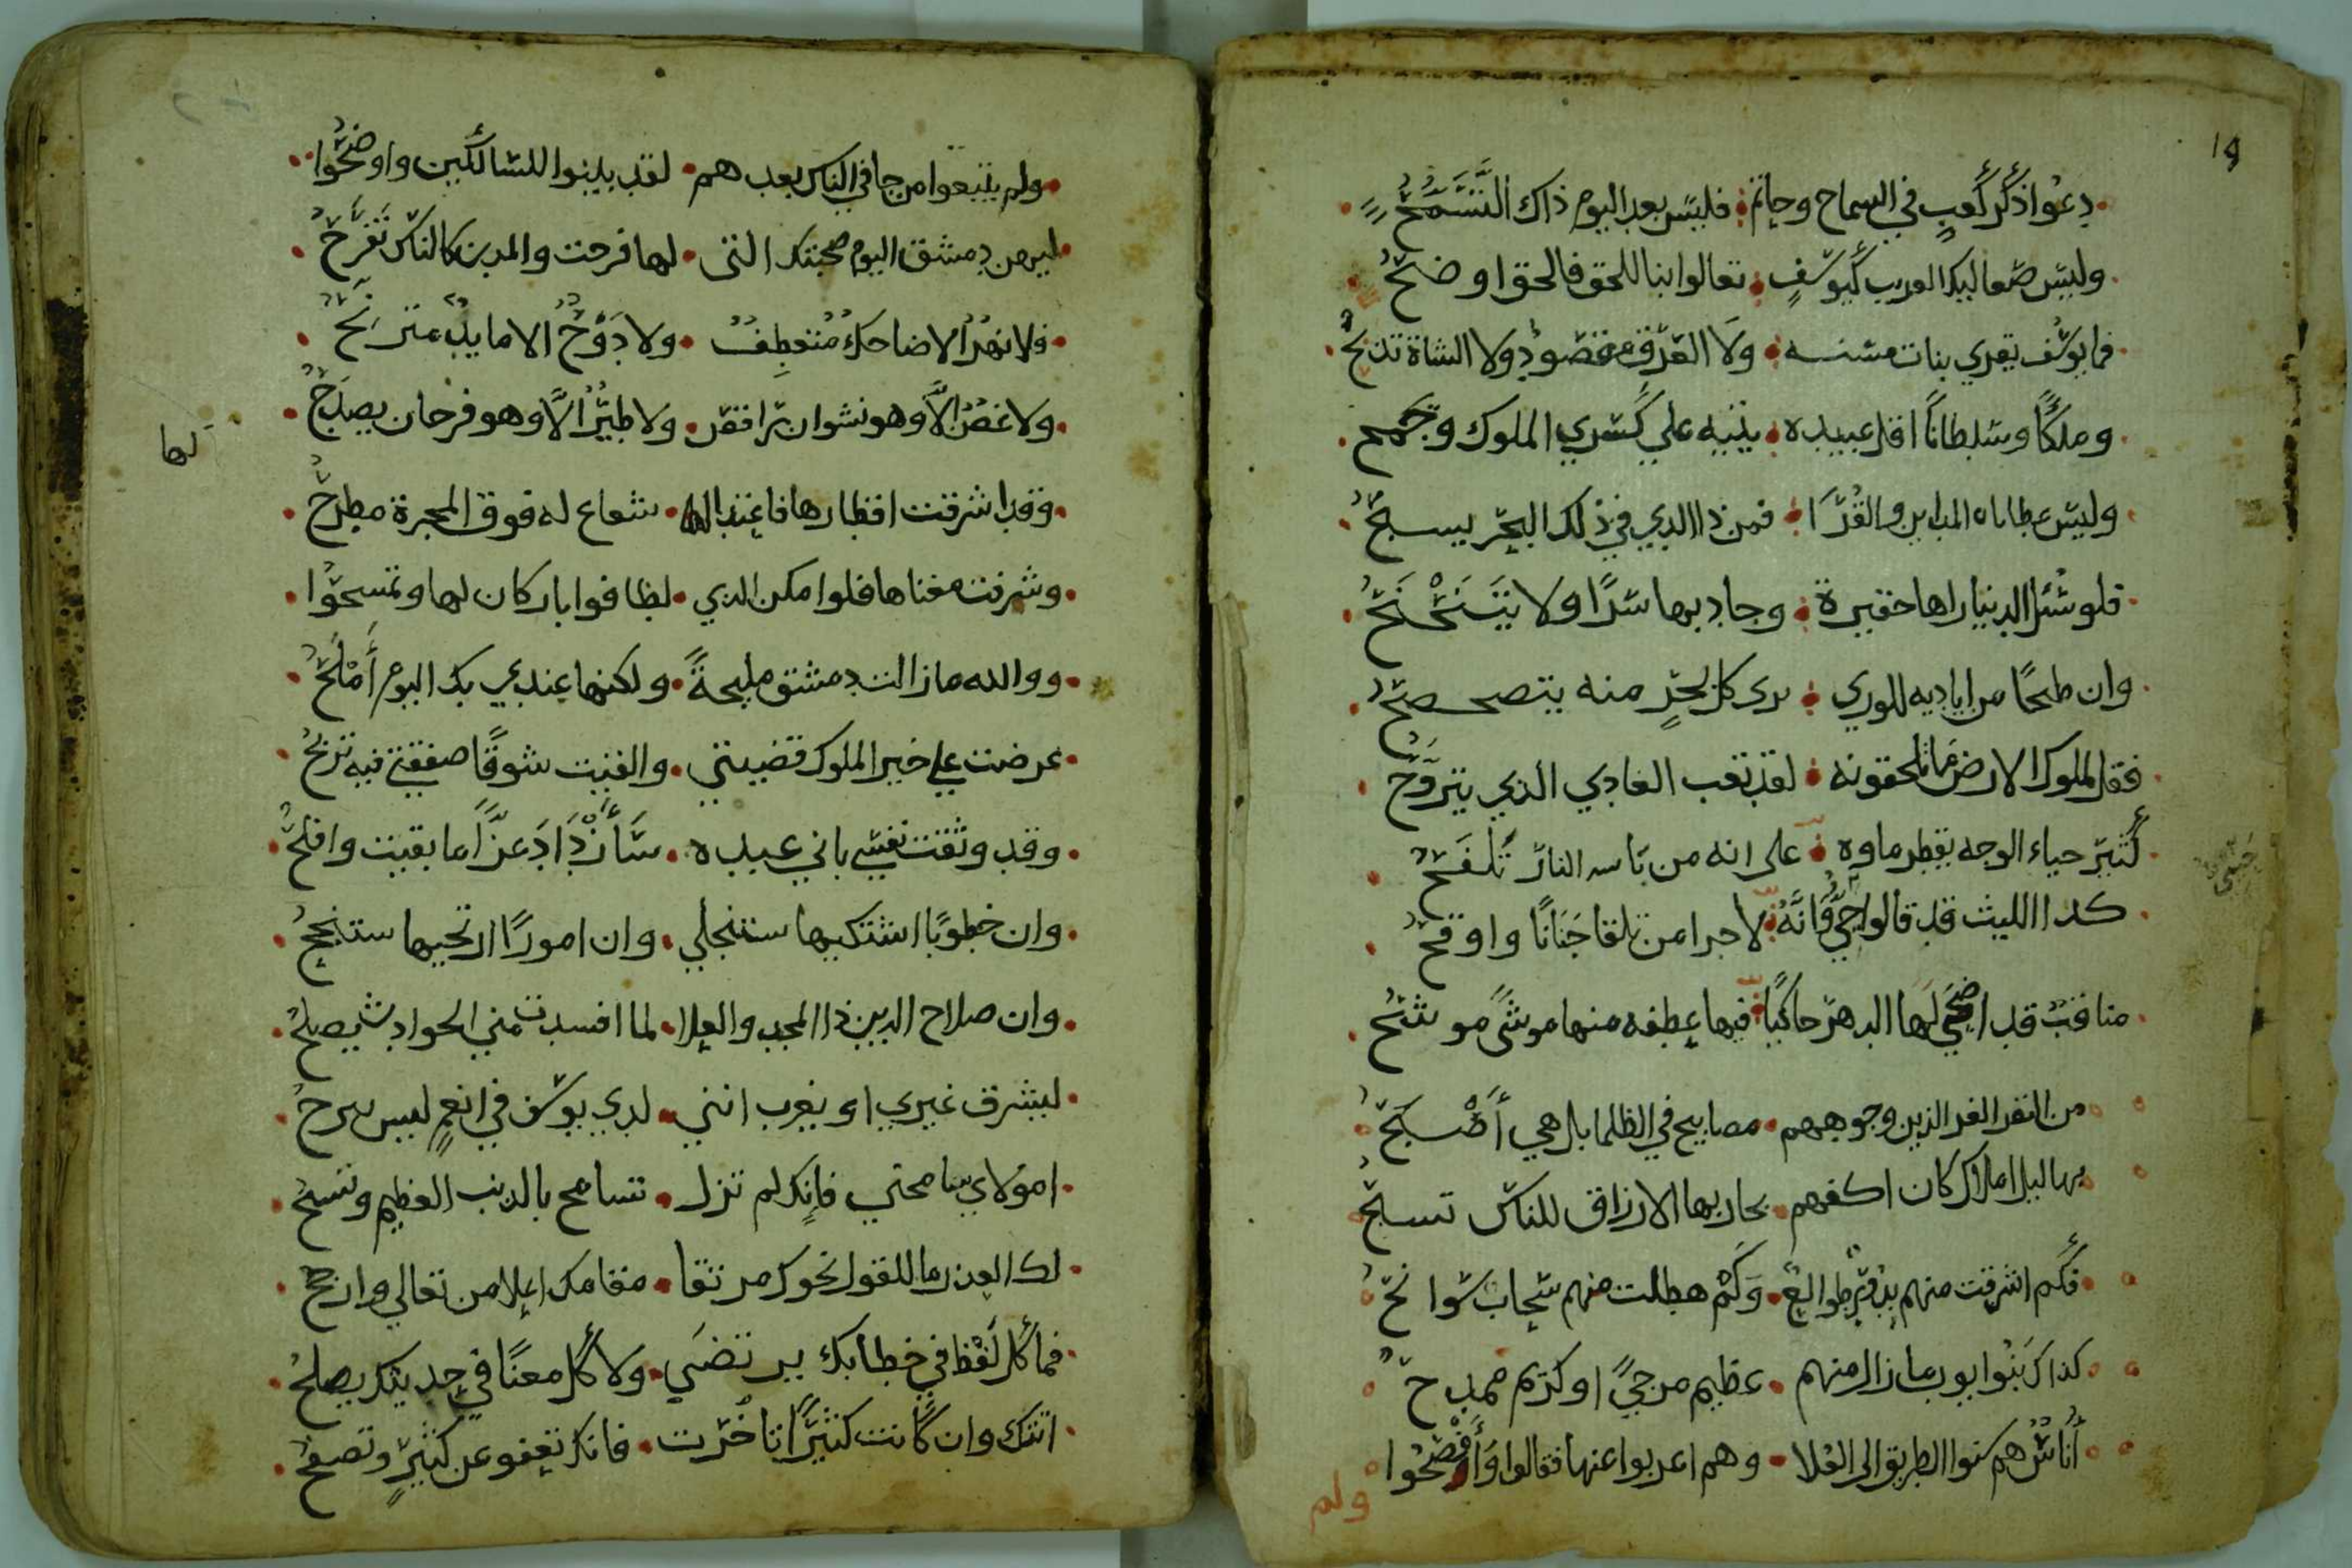 19
دعوا ذكر كعب في السماح وحاتم فليس بعد اليوم ذاك التسمح
وليس صعاليك العريب كيوسف تعالوا بنا للحق فالحق اوضح
فما يوسف يقري بناب مسنه ولا العرق مفصود ولا الشاة تذبح
وملكا وسلطانا اقل عبيده يتيه علي كسري الملوك وجمح
وليس عطاياه المداين والقرا فمن ذا الذي في ذلك البحر يسبح
فلو سئل الدنيا راها حقيرة وجاد بها سرا ولا يتنحنح
وان طمحا من اياديه للوري يري كل بحر منه يتصحصح
فقل لملوك الارض ما تلحقونه لقد تعب الغادي الذي يتروح
كثير حياء الوجه يقطر ماوه على انه من باسه النار تلفح
كذا الليث قد قالوا حيي وانه لاجرا من تلقا جنانا واوقح
مناقب قد اضحي لها الدهر حاكيا فيها عطفه منها موشى موشح
من النفر الغر الذين وجوههم مصابيح في الظلما بل هي أصبح
بهاليل املاك كان اكفهم بحار بها الارزاق للناس تسبح
فكم اشرقت منهم بدور طوالع وكم هطلت منهم سحاب سوانح
كذاك بنوا ايوب مازال منهم عظيم مرجي او كريم ممدح
أناس هم سنوا الطريق الى العلا وهم اعربوا عنها فقالوا وأفصحوا
ولم
ولم يتبعوا من جا في الناس بعدهم لقد بينوا للسالكين واوضحوا
ليهن دمشق اليوم صحبتك التى لها فرحت والمدن كالناس تفرح
فلا نهر الا ضاحك متعطف ولا دوح الا مايد مترنح
ولا غصن الا وهو نشوان راقص ولا طير الا وهو فرحان يصدح
وقد اشرقت اقطارها فاغتدا لها شعاع له فوق المجرة مطرح
لها
وشرفت مغناها فلو امكن الذي لطافوا باركان لها وتمسحوا
ووالله مازالت دمشق مليحة ولكنها عندي بك اليوم أملح
عرضت علي خير الملوك قضيتي والفيت سوقا صفقتي فيه تربح
وقد وثقت نفسي باني عبده سأزداد عزا ما بقيت وافلح
وان خطوبا اشتكيها ستنجلي وان امورا ارتجيها ستنجح
وان صلاح الدين ذا المجد والعلا لما افسدت مني الحوادث يصلح
ليشرق غيري او يغرب انني لدي يوسف في انعم ليس يبرح
امولاي سامحني فانك لم تزل تسامح بالذنب العظيم وتسمح
لك العذر ما للقول نحوك مرتقا مقامك اعلا من تعالي وارجح
فما كل لفظ في خطابك يرتضي ولا كل معنا في حديثك يصلح
اتتك وان كانت كثيرا تاخرت فانك تعفو عن كثير وتصفح